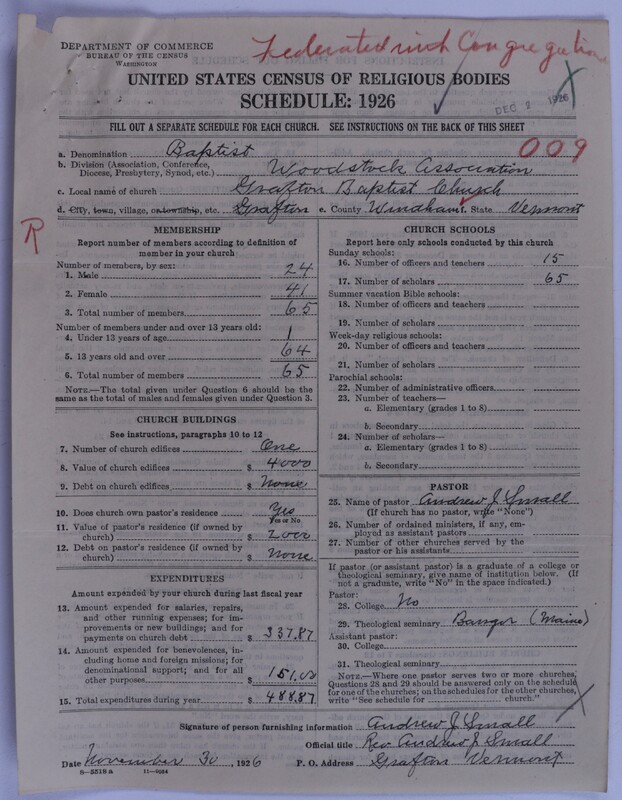 DEPARTMENT OF COMMERCE
BUREAU OF THE CENSUS
WASHINGTON
Federated with Congregational
UNITED STATES CENSUS OF RELIGIOUS BODIES
SCHEDULE: 1926
DEC 2 1926
FILL OUT A SEPARATE SCHEDULE FOR EACH CHURCH. SEE INSTRUCTIONS ON THE BACK OF THIS SHEET
a. Denomination Baptist 009
b. Division (Association, Conference, Diocese, Presbytery, Synod, etc.) Woodstock Association
c. Local name of church Grafton Baptist Church
d. City, town, village, or township, etc. Grafton e. County Windham f. State Vermont
R
MEMBERSHIP
Report number of members according to definition of
member in your church
Number of members, by sex:
1. Male 24
2. Female 41
3. Total number of members 65
Number of members under and over 13 years old:
4. Under 13 years of age 1
5. 13 years old and over 64
6. Total number of members 65
NOTE.—The total given under Question 6 should be the
same as the total of males and females given under Question 3.
CHURCH BUILDINGS
See instructions, paragraphs 10 to 12
7. Number of church edifices One
8. Value of church edifices $ 4000
9. Debt on church edifices $ None
10. Does church own pastor's residence Yes
Yes or No
11. Value of pastor's residence (if owned by
church) $ 2000
12. Debt on pastor's residence (if owned by
church) $ None
EXPENDITURES
Amount expended by your church during last fiscal year
13. Amount expended for salaries, repairs,
and other running expenses; for im-
provements or new buildings; and for
payments on church debt $ 337.87
14. Amount expended for benevolences, in-
cluding home and foreign missions; for
denominational support; and for all
other purposes $ 151.00
15. Total expenditures during year $ 488.87
CHURCH SCHOOLS
Report here only schools conducted by this church
Sunday schools:
16. Number of officers and teachers 15
17. Number of scholars 65
Summer vacation Bible schools:
18. Number of officers and teachers
19. Number of scholars
Week-day religious schools:
20. Number of officers and teachers
21. Number of scholars
Parochial schools:
22. Number of administrative officers
23. Number of teachers—
a. Elementary (grades 1 to 8)
b. Secondary
24. Number of scholars—
a. Elementary (grades 1 to 8)
b. Secondary
PASTOR
25. Name of pastor Andrew J Small
(If church has no pastor, write "None")
26. Number of ordained ministers, if any, em-
ployed as assistant pastors
27. Number of other churches served by the
pastor or his assistants
If pastor (or assistant pastor) is a graduate of a college or
theological seminary, give name of institution below. (If
not a graduate, write "No" in the space indicated.)
Pastor:
28. College No
29. Theological seminary Bangor (Maine)
Assistant pastor:
30. College
31. Theological seminary
NOTE.—Where one pastor serves two or more churches,
Questions 28 and 29 should be answered only on the schedule
for one of the churches; on the schedules for the other churches,
write "See schedule for church."
Signature of person furnishing information Andrew J Small
Official title Rev Andrew J Small
Date November 30, 1926 P. O. Address Grafton Vermont
8—5518 a 11—9064